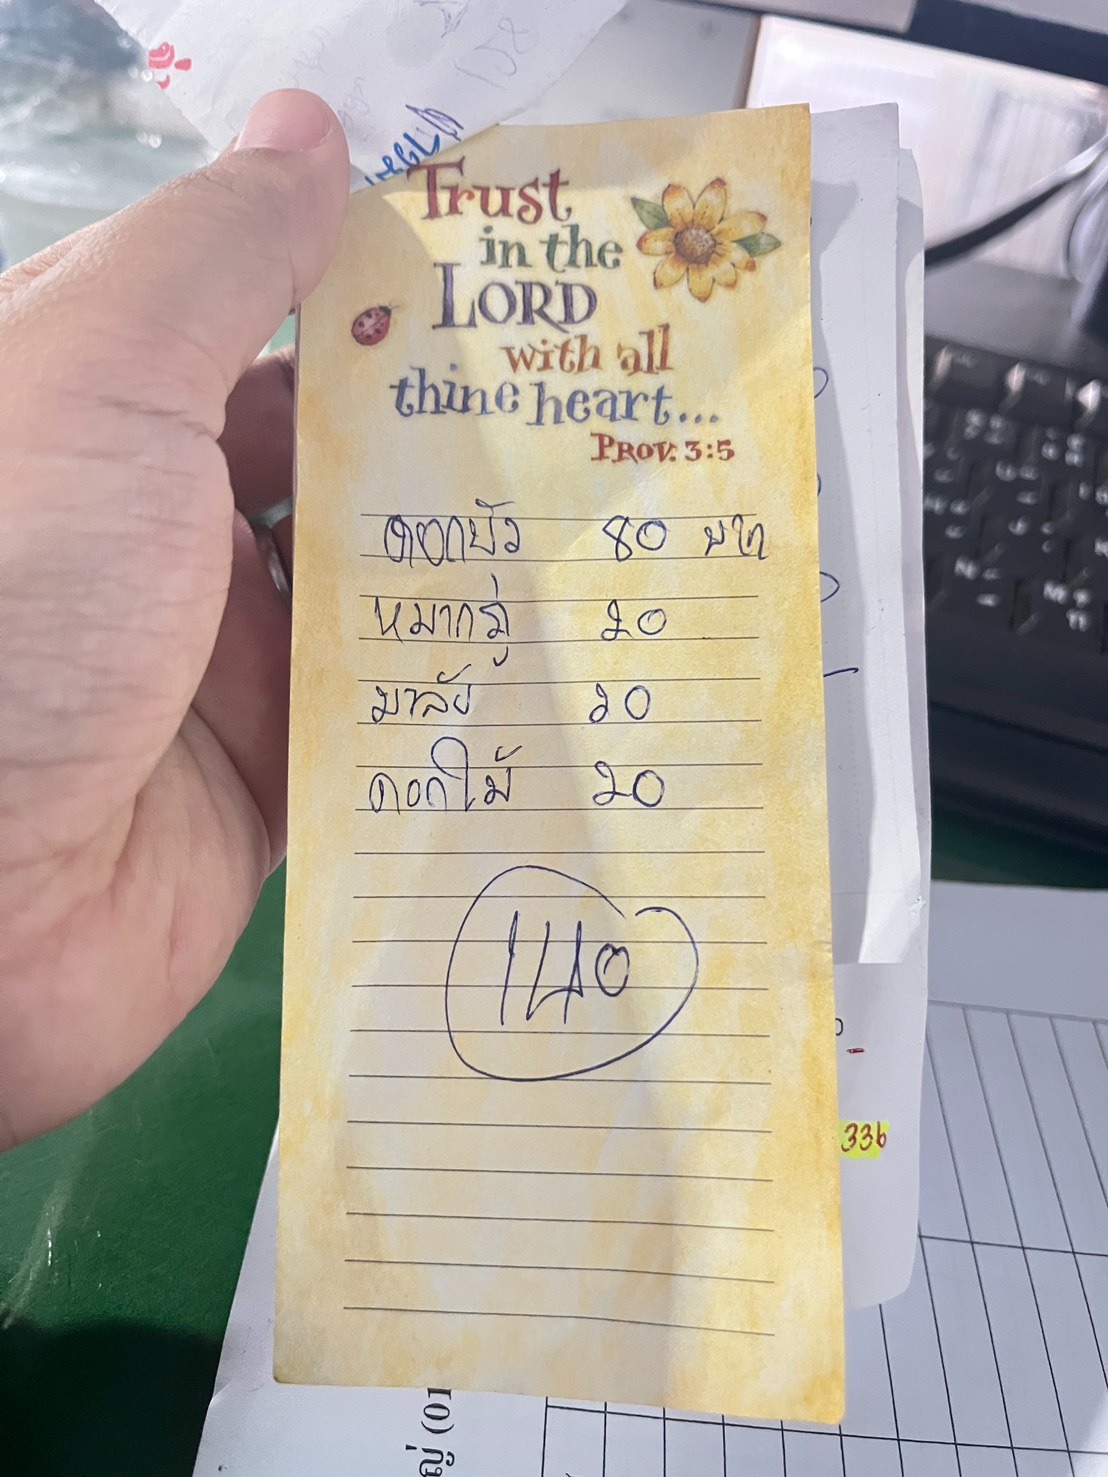 Trust
in the
LORD
with all
thine heart...
PROV. 3:5
ดอกบัว 80 บาท
หมากพลู 20
มาลัย 20
ดอกไม้ 20
140
336
ญ่ (01